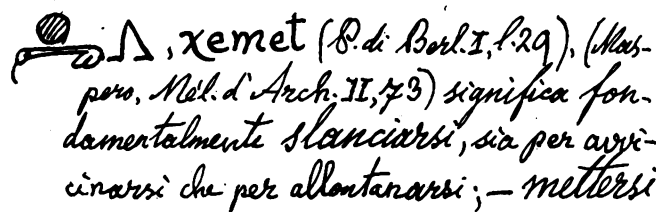 , χemet (P. di Berl. I, l. 29), (Mas-
pero, Mél. d'Arch. II, 73) significa fon-
damentalmente slanciarsi, sia per avvi-
cinarsi che per allontanarsi; — mettersi